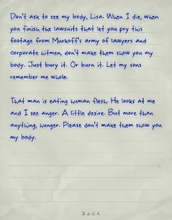 Don't ask to see my body, Lisa. When I die, when
you finish the lawsuits that let you pry this
footage from Murkoff's army of lawyers and
corporate hitmen, don't make them show you my
body. Just bury it. Or burn it. Let my sons
remember me whole.
That man is eating human flesh. He looks at me
and I see anger. A little desire. But more than
anything, hunger. Please don't make them show you
my body.
Back